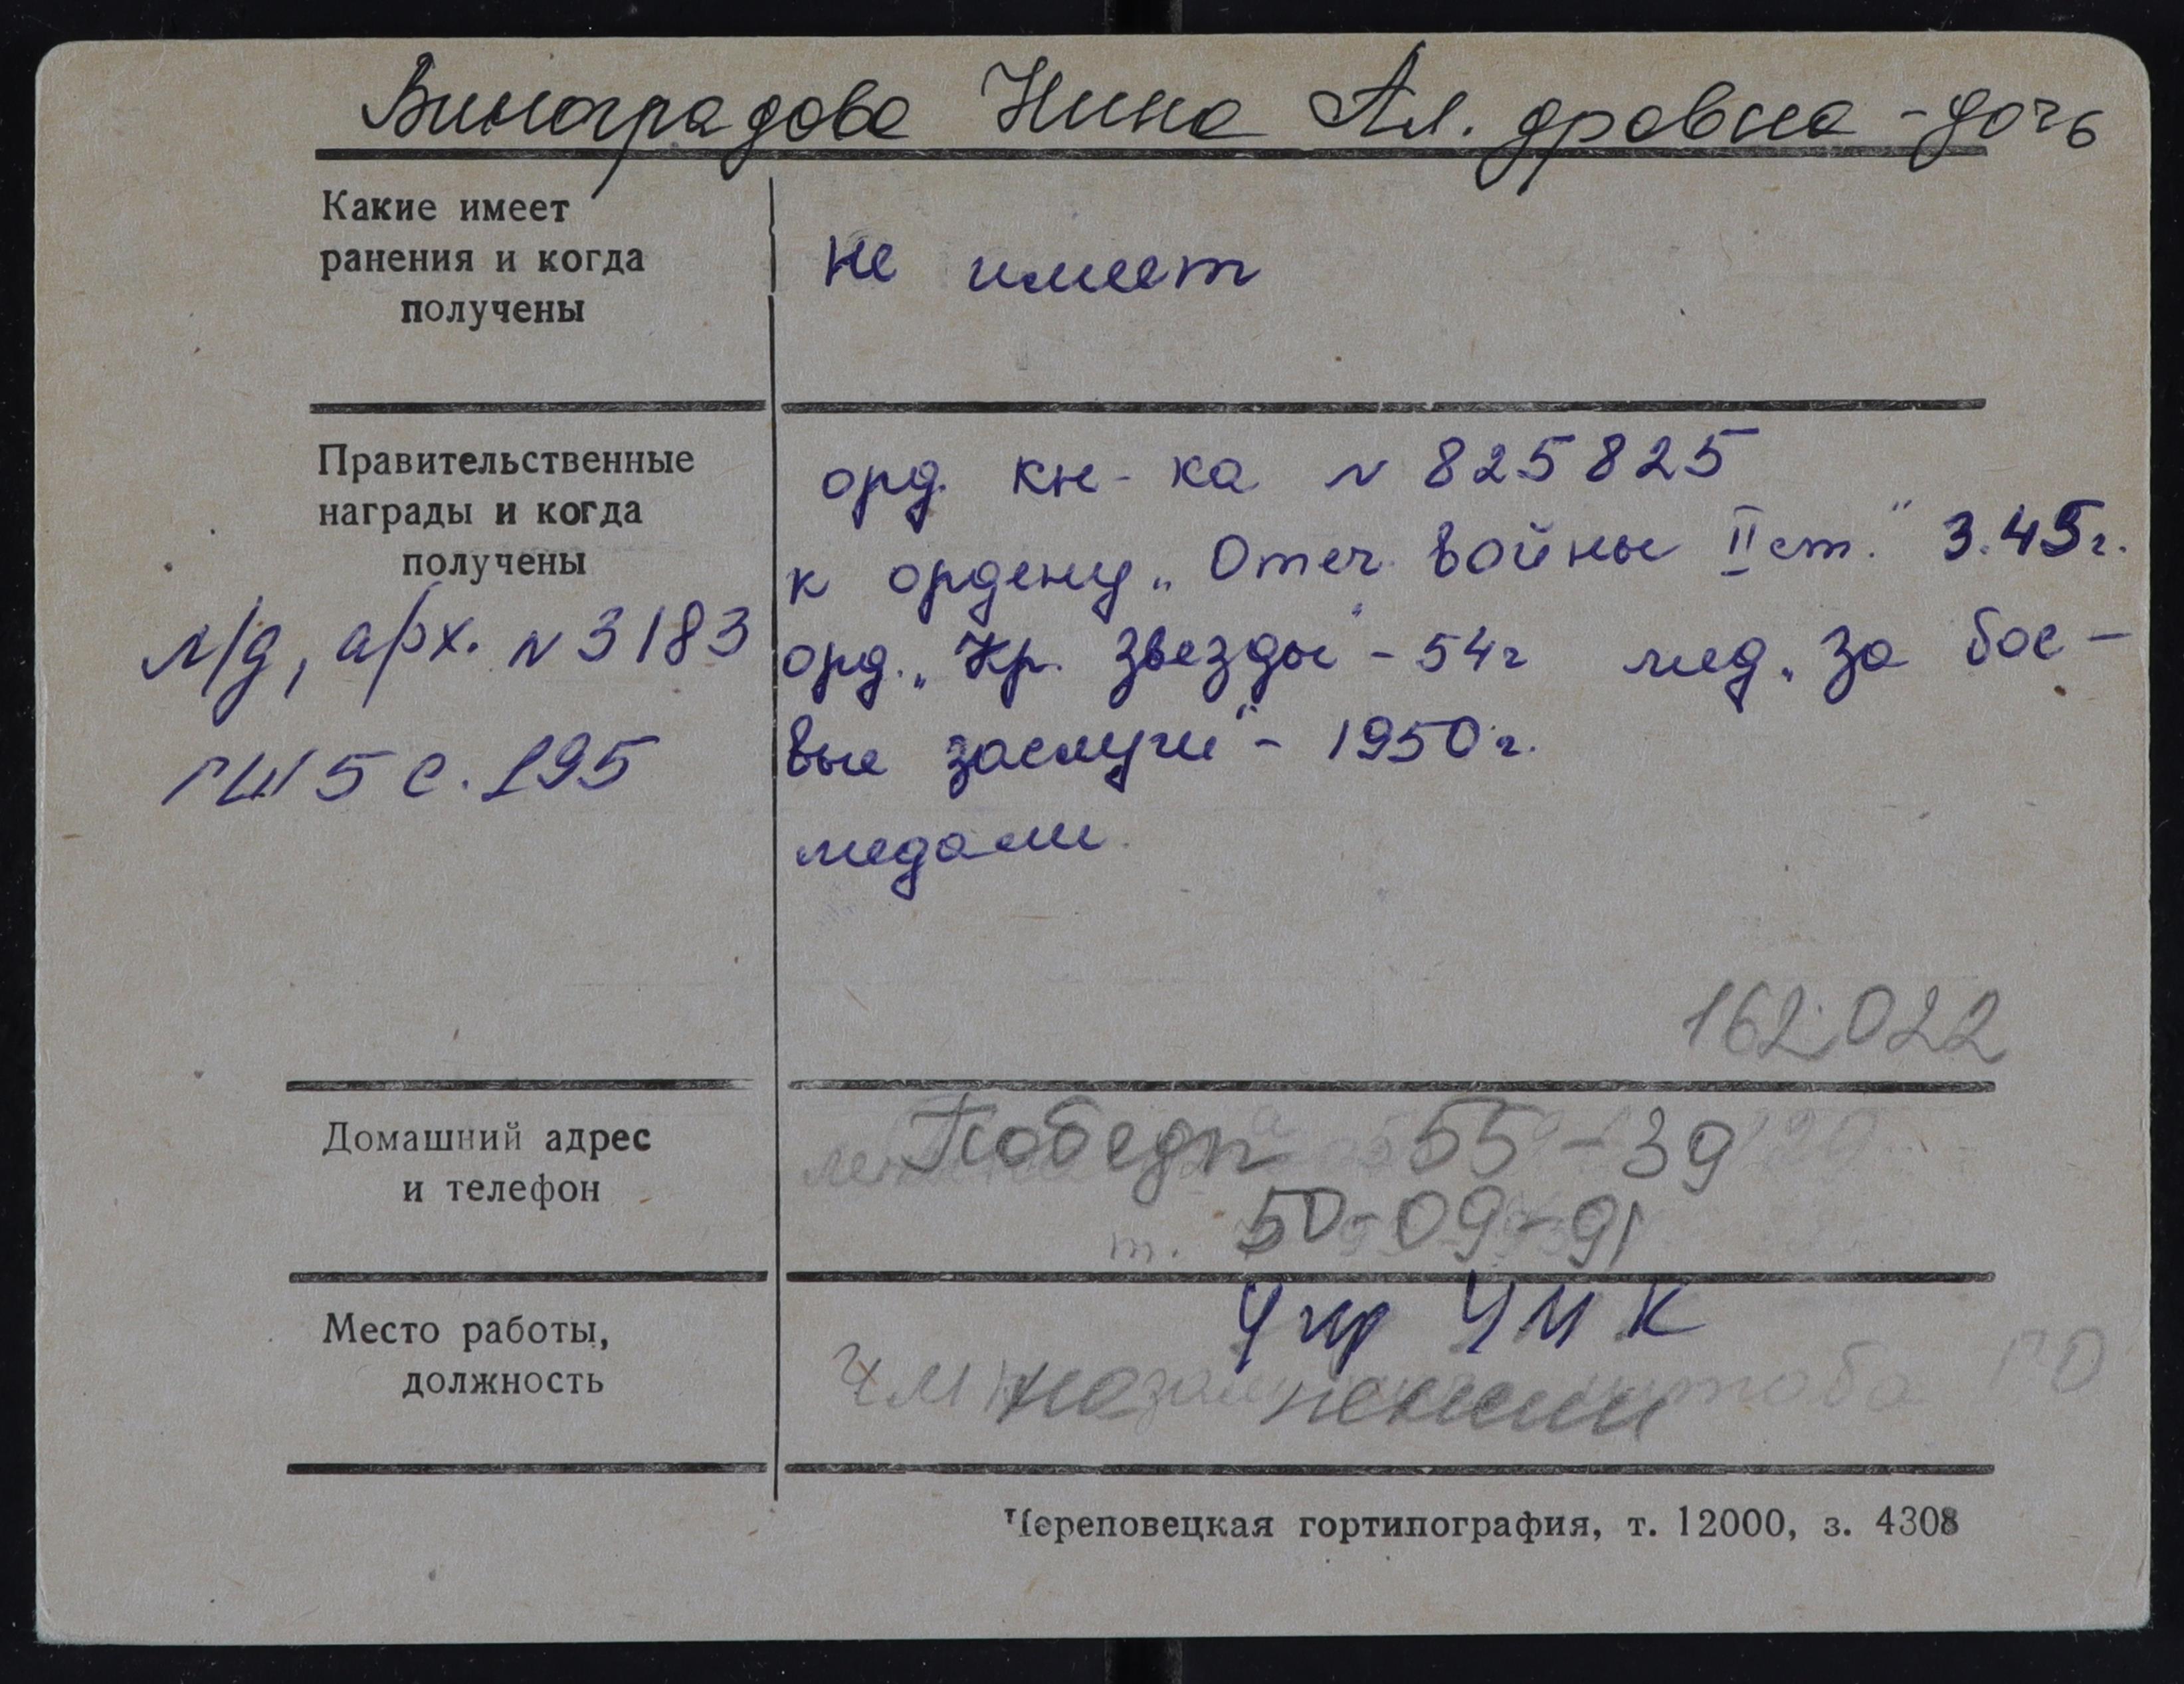 Виноградова Нина Ал.дровна - дочь
Какие имеет
ранения и когда
получены
не имеет
Правительственные
награды и когда
получены
л/д, арх. N 3183
ГШ 5 с. 195
орд. кн-ка N 825825
к ордену „Отеч. войны II ст." 3.45г.
орд. „Кр. Звезды" - 54г мед. „За бое-
вые заслуги" - 1950г.
медали
162.022
Домашний адрес
и телефон
Победы 55-39
т. 50-09-91
Место работы,
должность
ЧМК
на пенсии
Череповецкая гортипография, т. 12000, з. 4308